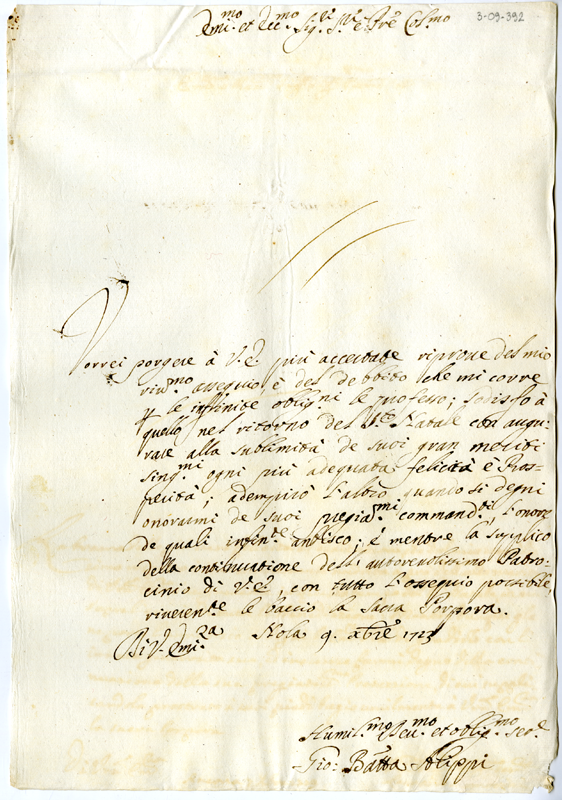 3-09-392
Emi.mo et Rev.mo Sig.r S.r e P.rõe Col.mo
Vorrei porgere à V.E. più accertate riprove del mio
riv.mo ossequio è del debbito che mi corre
p le infinite oblig.ni le professo; sodisfo à
quello nel ritorno del S.to Natale con augu-
rare alla sublimità de suoi gran meriti
sing.mi ogni più adequata felicità è Pros-
perità; adempirò l'altro quando si degni
onorarmi de suoi pregia.mi command.ti, l'onore
de quali infin.te ambisco; é mentre la supplico
della continuatione dell' autorevolissimo Patro-
cinio di V.E., con tutto l'ossequio possibile,
riverente.te le baccio la Sacra Porpora.
Di V. Emi.za Nola 9. Xbre 1723
Humil.mo Dev.mo et oblig.mo ser.e
Gio: Batta Alippi